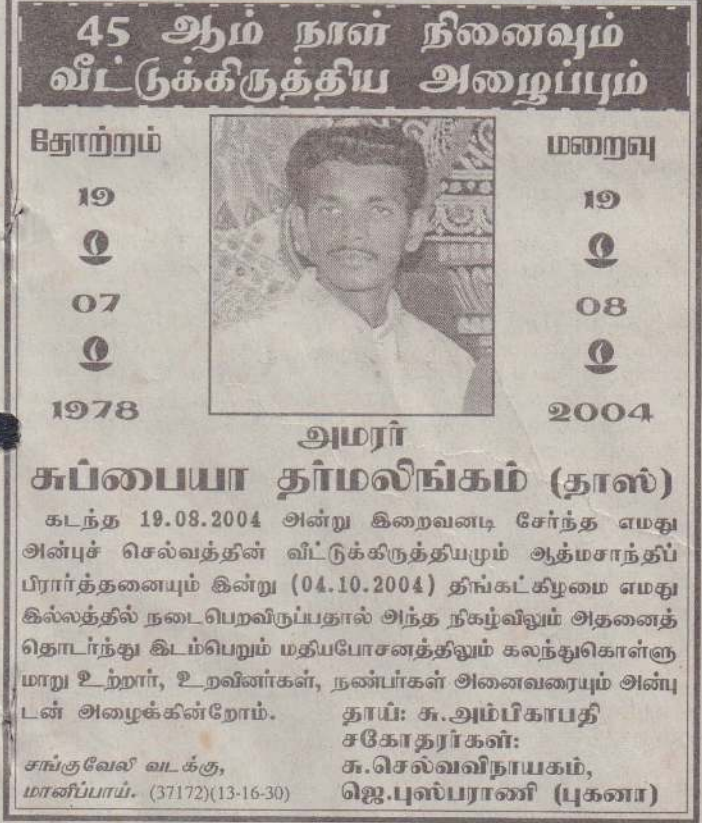 45 ஆம் நாள் நினைவும்
வீட்டுக்கிருத்திய அழைப்பும்
தோற்றம்
19
07
1978
மறைவு
19
08
2004
அமரர்
சுப்பையா தர்மலிங்கம் (தாஸ்)
கடந்த 19.08.2004 அன்று இறைவனடி சேர்ந்த எமது
அன்புச் செல்வத்தின் வீட்டுக்கிருத்தியமும் ஆத்மசாந்திப்
பிரார்த்தனையும் இன்று (04.10.2004) திங்கட்கிழமை எமது
இல்லத்தில் நடைபெறவிருப்பதால் அந்த நிகழ்விலும் அதனைத்
தொடர்ந்து இடம்பெறும் மதியபோசனத்திலும் கலந்துகொள்ளு
மாறு உற்றார், உறவினர்கள், நண்பர்கள் அனைவரையும் அன்பு
டன் அழைக்கின்றோம்.
தாய்: சு.அம்பிகாபதி
சகோதரர்கள்:
சு.செல்வவிநாயகம்,
ஜெ.புஸ்பராணி (புகனா)
சங்குவேலி வடக்கு,
மானிப்பாய். (37172)(13-16-30)